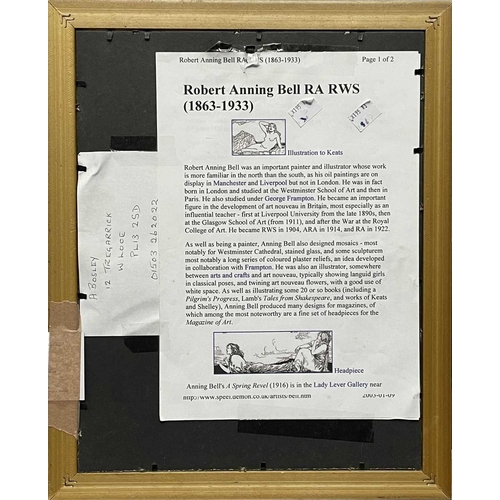 Robert Anning Bell RA RWS (1863-1933) Page 1 of 2
Robert Anning Bell RA RWS
(1863-1933)
Illustration to Keats
Robert Anning Bell was an important painter and illustrator whose work
is more familiar in the north than the south, as his oil paintings are on
display in Manchester and Liverpool but not in London. He was in fact
born in London and studied at the Westminster School of Art and then in
Paris. He also studied under George Frampton. He became an important
figure in the development of art nouveau in Britain, most especially as an
influential teacher - first at Liverpool University from the late 1890s, then
at the Glasgow School of Art (from 1911), and after the War at the Royal
College of Art. He became RWS in 1904, ARA in 1914, and RA in 1922.
As well as being a painter, Anning Bell also designed mosaics - most
notably for Westminster Cathedral, stained glass, and some sculpture
most notably a long series of coloured plaster reliefs, an idea developed
in collaboration with Frampton. He was also an illustrator, somewhere
between arts and crafts and art nouveau, typically showing languid girls
in classical poses, and twining art nouveau flowers, with a good use of
white space. As well as illustrating some 20 or so books (including a
Pilgrim's Progress, Lamb's Tales from Shakespeare, and works of Keats
and Shelley), Anning Bell produced many designs for magazines, of
which among the most noteworthy are a fine set of headpieces for the
Magazine of Art.
Headpiece
Anning Bell's A Spring Revel (1916) is in the Lady Lever Gallery near
http://www.speel.demon.co.uk/artists/bell.htm 2003-01-09
A BOSLEY
12 TREGARRICK
W LOOE
PL13 2SD
01503 262022